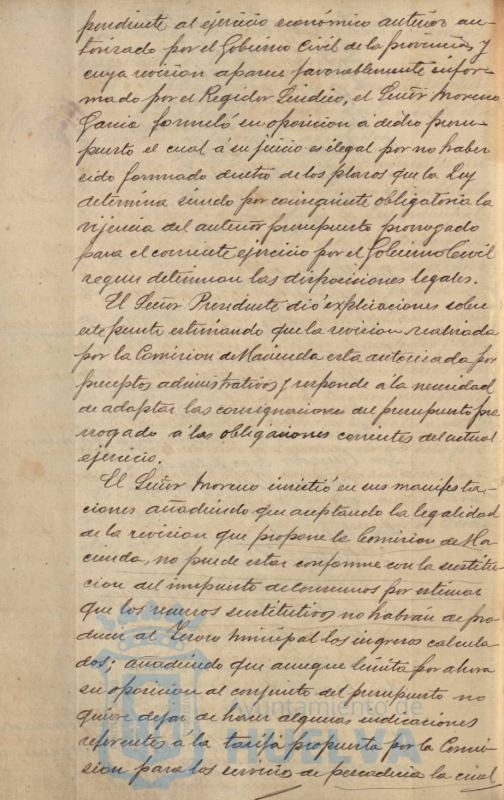 pondiente al ejercicio económico anterior au-
torizado por el Gobierno Civil de la provincia, y
cuya revision aparece favorablemente infor-
mado por el Regidor Sindico, el Señor Moreno
Garcia formuló su oposicion á dicho presu-
puesto el cual á su juicio es ilegal por no haber
sido formado dentro de los plazos que la Ley
determina siendo por consiguiente obligatoria la
vijencia del anterior presupuesto prorrogado
para el corriente ejercicio por el Gobierno Civil
segun determinan las disposiciones legales.
El Señor Presidente dió explicaciones sobre
este punto estimando que la revision realizada
por la Comision de Hacienda esta autorizada por
preceptos administrativos y responde á la necesidad
de adaptar las consignaciones del presupuesto pro-
rrogado á las obligaciones corrientes del actual
ejercicio.
El Señor Moreno insistió en sus manifesta-
ciones añadiendo que aceptando la legalidad
de la revision que propone la Comision de Ha-
cienda, no puede estar conforme con la sustitu-
cion del impuesto de Consumos por estimar
que los recursos sustitutivos no habrán de pro-
ducir al Tesoro municipal los ingresos calcula-
dos; añadiendo que aunque limita por ahora
su oposicion al conjunto del presupuesto no
quiere dejar de hacer algunas indicaciones
referentes á la tarifa propuesta por la Comi-
sion para los servicio de pescaderia la cual
Ayuntamiento de
HUELVA